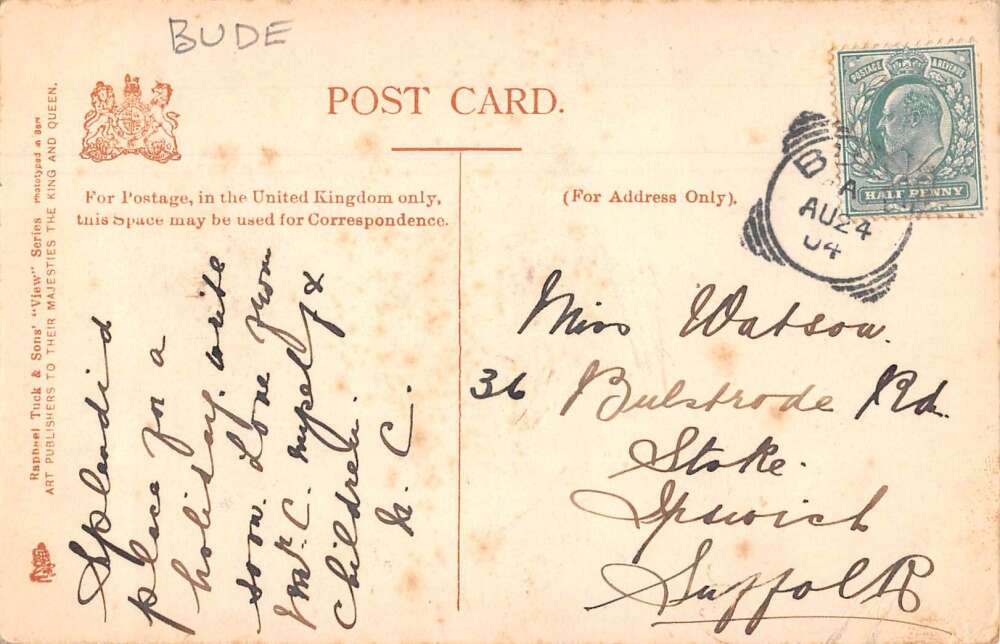 BUDE
POST CARD.
For Postage, in the United Kingdom only,
this Space may be used for Correspondence.
(For Address Only).
Raphael Tuck & Sons' "View" Series Phototyped in
ART PUBLISHERS TO THEIR MAJESTIES THE KING AND QUEEN.
POSTAGE & REVENUE
HALF PENNY
B
A
AU 24
04
Splendid
place for a
holiday. write
soon. Love from
Mr. C. myself &
children.
C.
Miss Watson.
36 Bulstrode Rd.
Stoke.
Ipswich
Suffolk